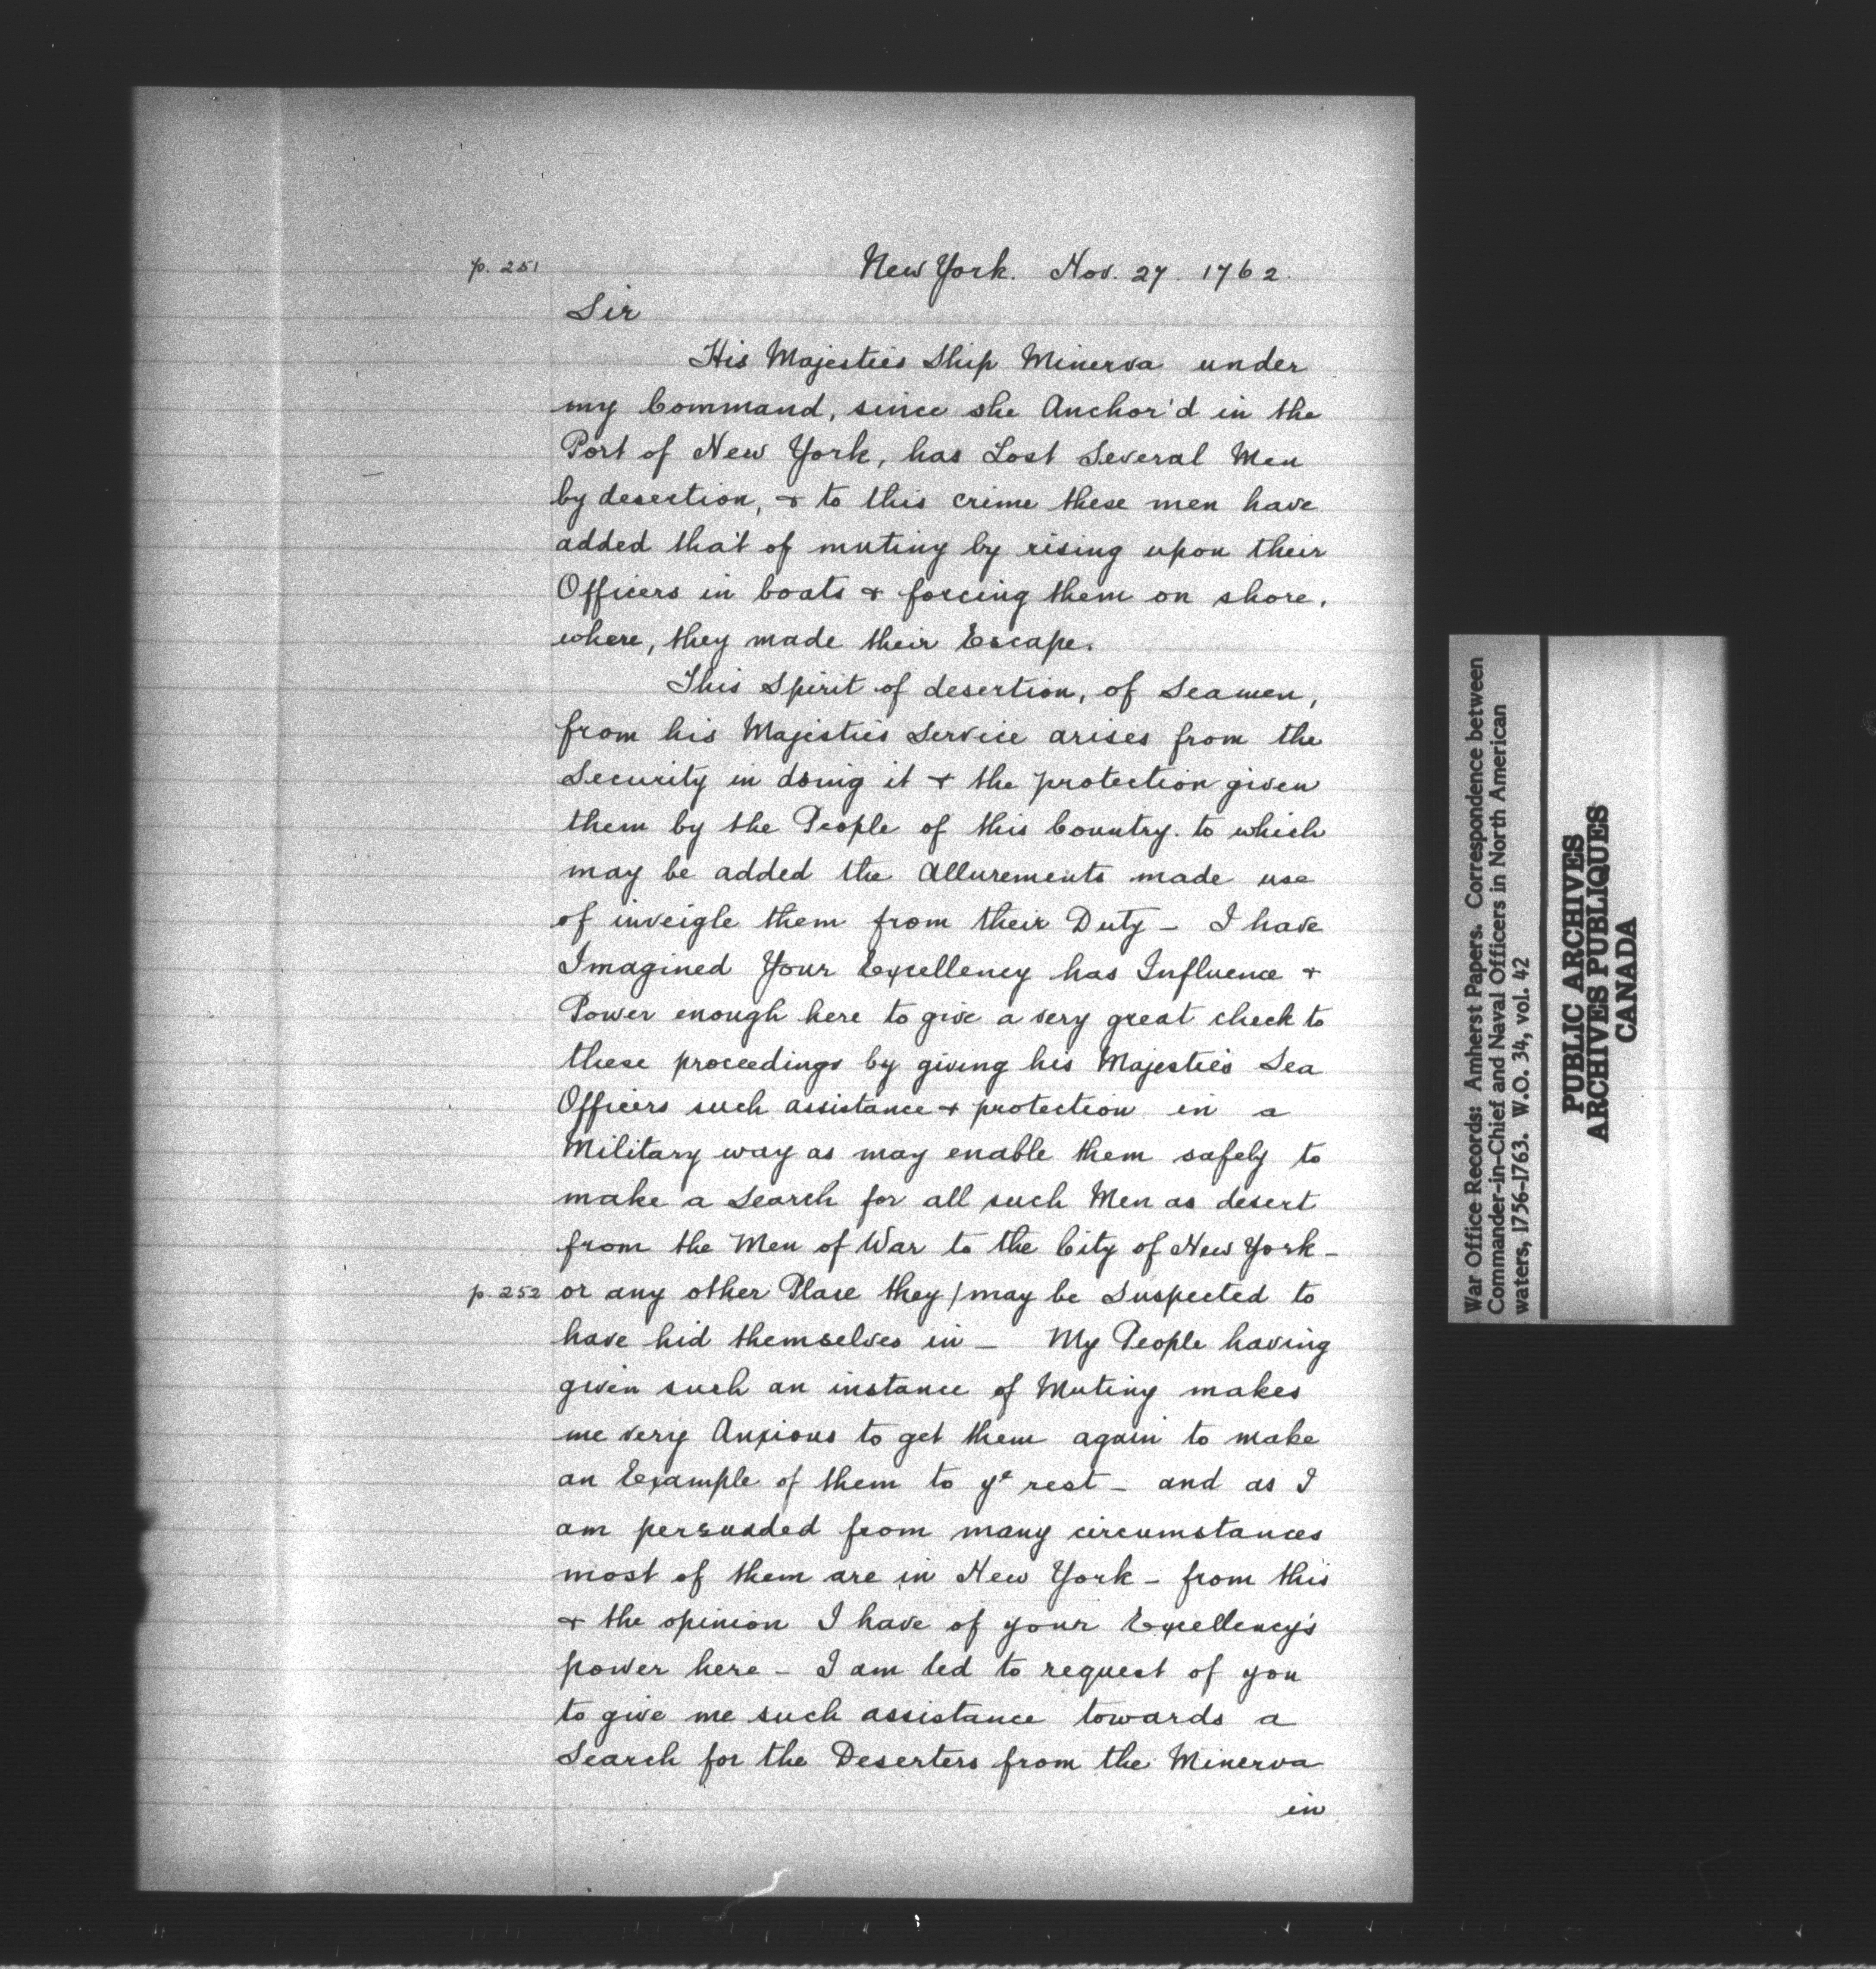 p. 251
New York. Nov. 27. 1762.
Sir
His Majesties Ship Minerva under
my Command, since she Anchor'd in the
Port of New York, has Lost Several Men
by desertion, & to this crime these men have
added that of mutiny by rising upon their
Officers in boats & forcing them on shore,
where, they made their Escape.
This Spirit of desertion, of Seamen,
from his Majesties Service arises from the
Security in doing it & the protection given
them by the People of this Country. to which
may be added the Allurements made use
of inveigle them from their Duty - I have
Imagined Your Excellency has Influence &
Power enough here to give a very great check to
these proceedings by giving his Majesties Sea
Officers such assistance & protection in a
Military way as may enable them safely to
make a Search for all such Men as desert
from the Men of War to the City of New York -
p. 252 or any other Place they / may be Suspected to
have hid themselves in - My People having
given such an instance of Mutiny makes
me very Anxious to get them again to make
an Example of them to ye rest - and as I
am persuaded from many circumstances
most of them are in New York - from this
& the opinion I have of your Excellency's
power here - I am led to request of you
to give me such assistance towards a
Search for the Deserters from the Minerva
in
War Office Records: Amherst Papers. Correspondence between
Commander-in-Chief and Naval Officers in North American
waters, 1756-1763. W.O. 34, vol. 42
PUBLIC ARCHIVES
ARCHIVES PUBLIQUES
CANADA